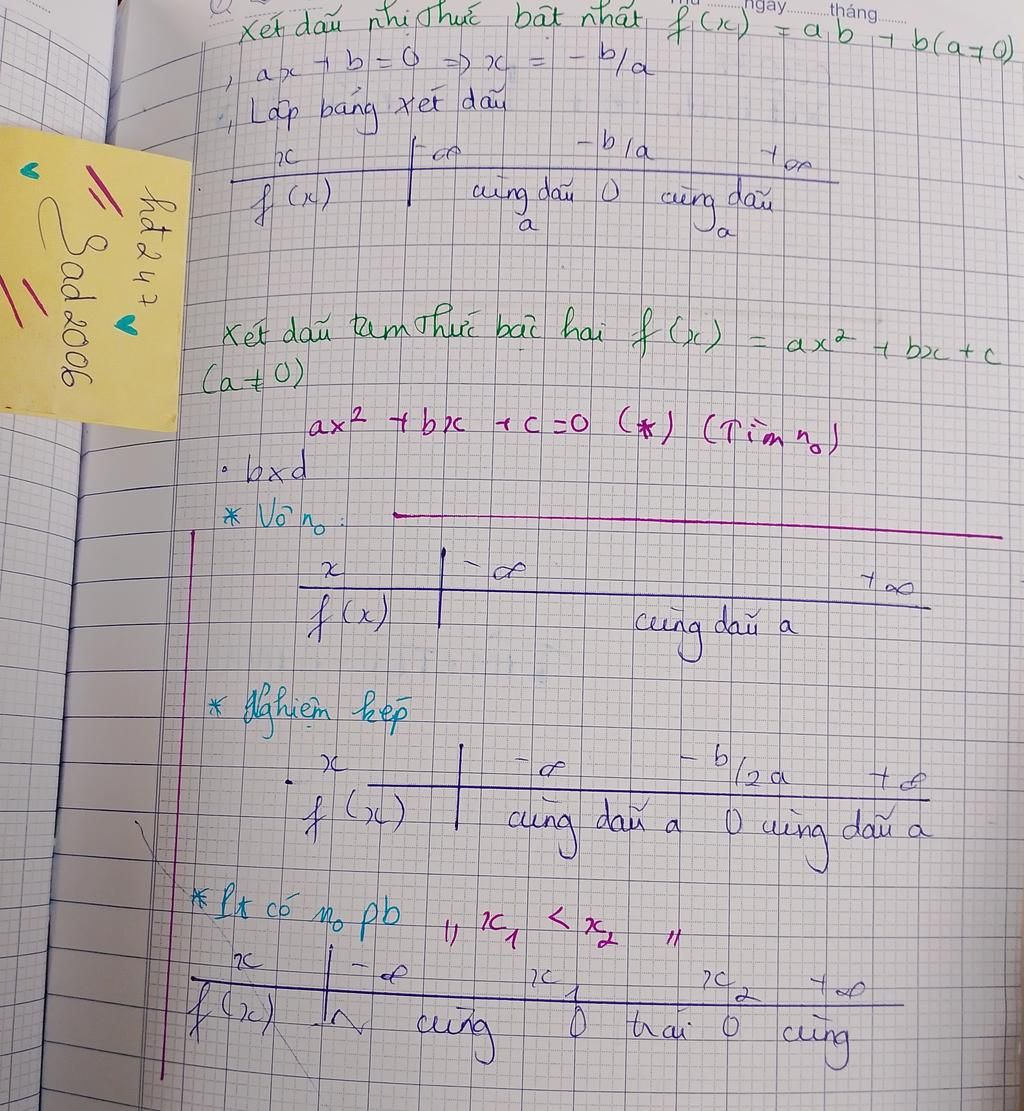 ngày.........tháng.......
Xét dấu nhị thức bất nhất f(x) = ab + b(a≠0)
, ax + b = 0 => x = - b/a
, Lập bảng xét dấu
x -∞ -b/a +∞
f(x) cùng dấu 0 cùng dấu
a a
hdt247
Sad2006
Xét dấu tam thức bậc hai f(x) = ax² + bx + c
(a≠0)
ax² + bx + c = 0 (*) (Tìm n₀)
• bxd
* Vô n₀ :
x -∞ +∞
f(x) cùng dấu a
* Nghiệm kép
x -∞ -b/2a +∞
f(x) cùng dấu a 0 cùng dấu a
* Pt có n₀ pb " x₁ < x₂ "
x -∞ x₁ x₂ +∞
f(x) cùng 0 trái 0 cùng